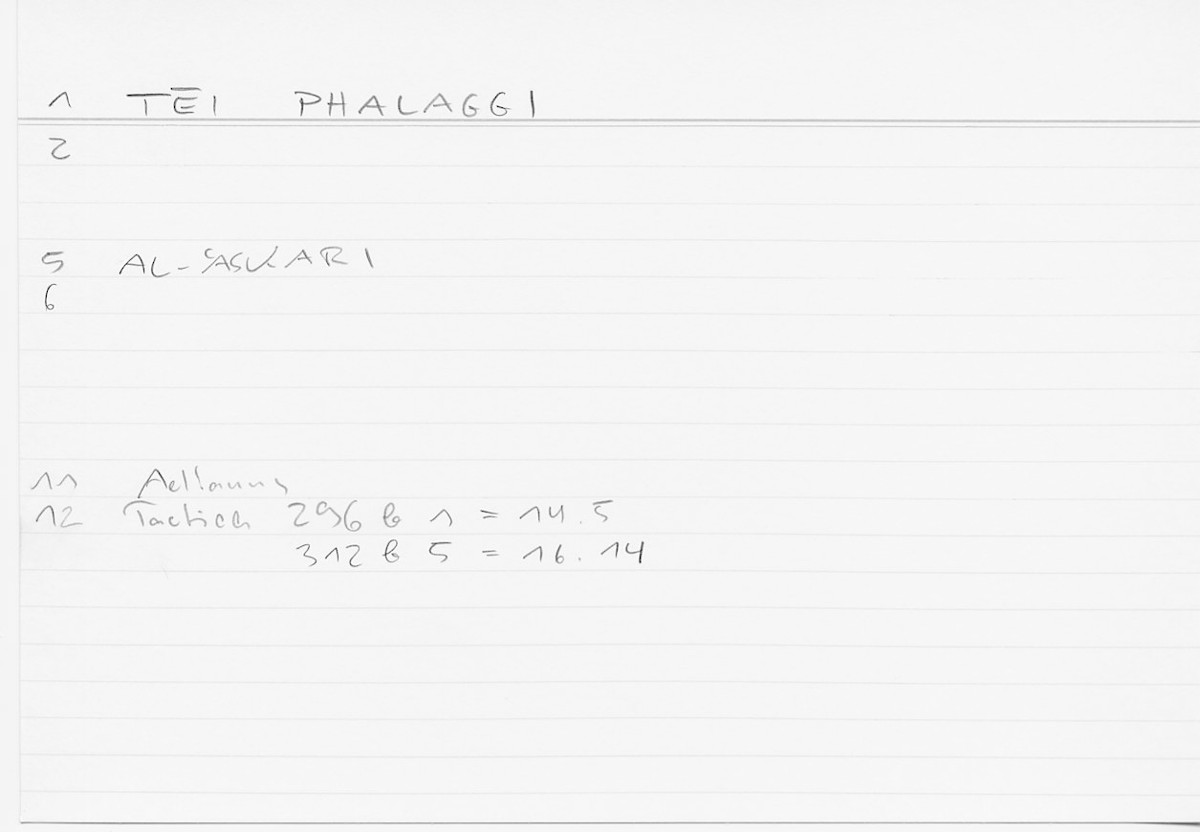 1 TĒI PHALAGGI
2
5 AL-ʿASKARI
6
11 Aelianus
12 Tactica 296 b 1 = 14.5
312 b 5 = 16.14